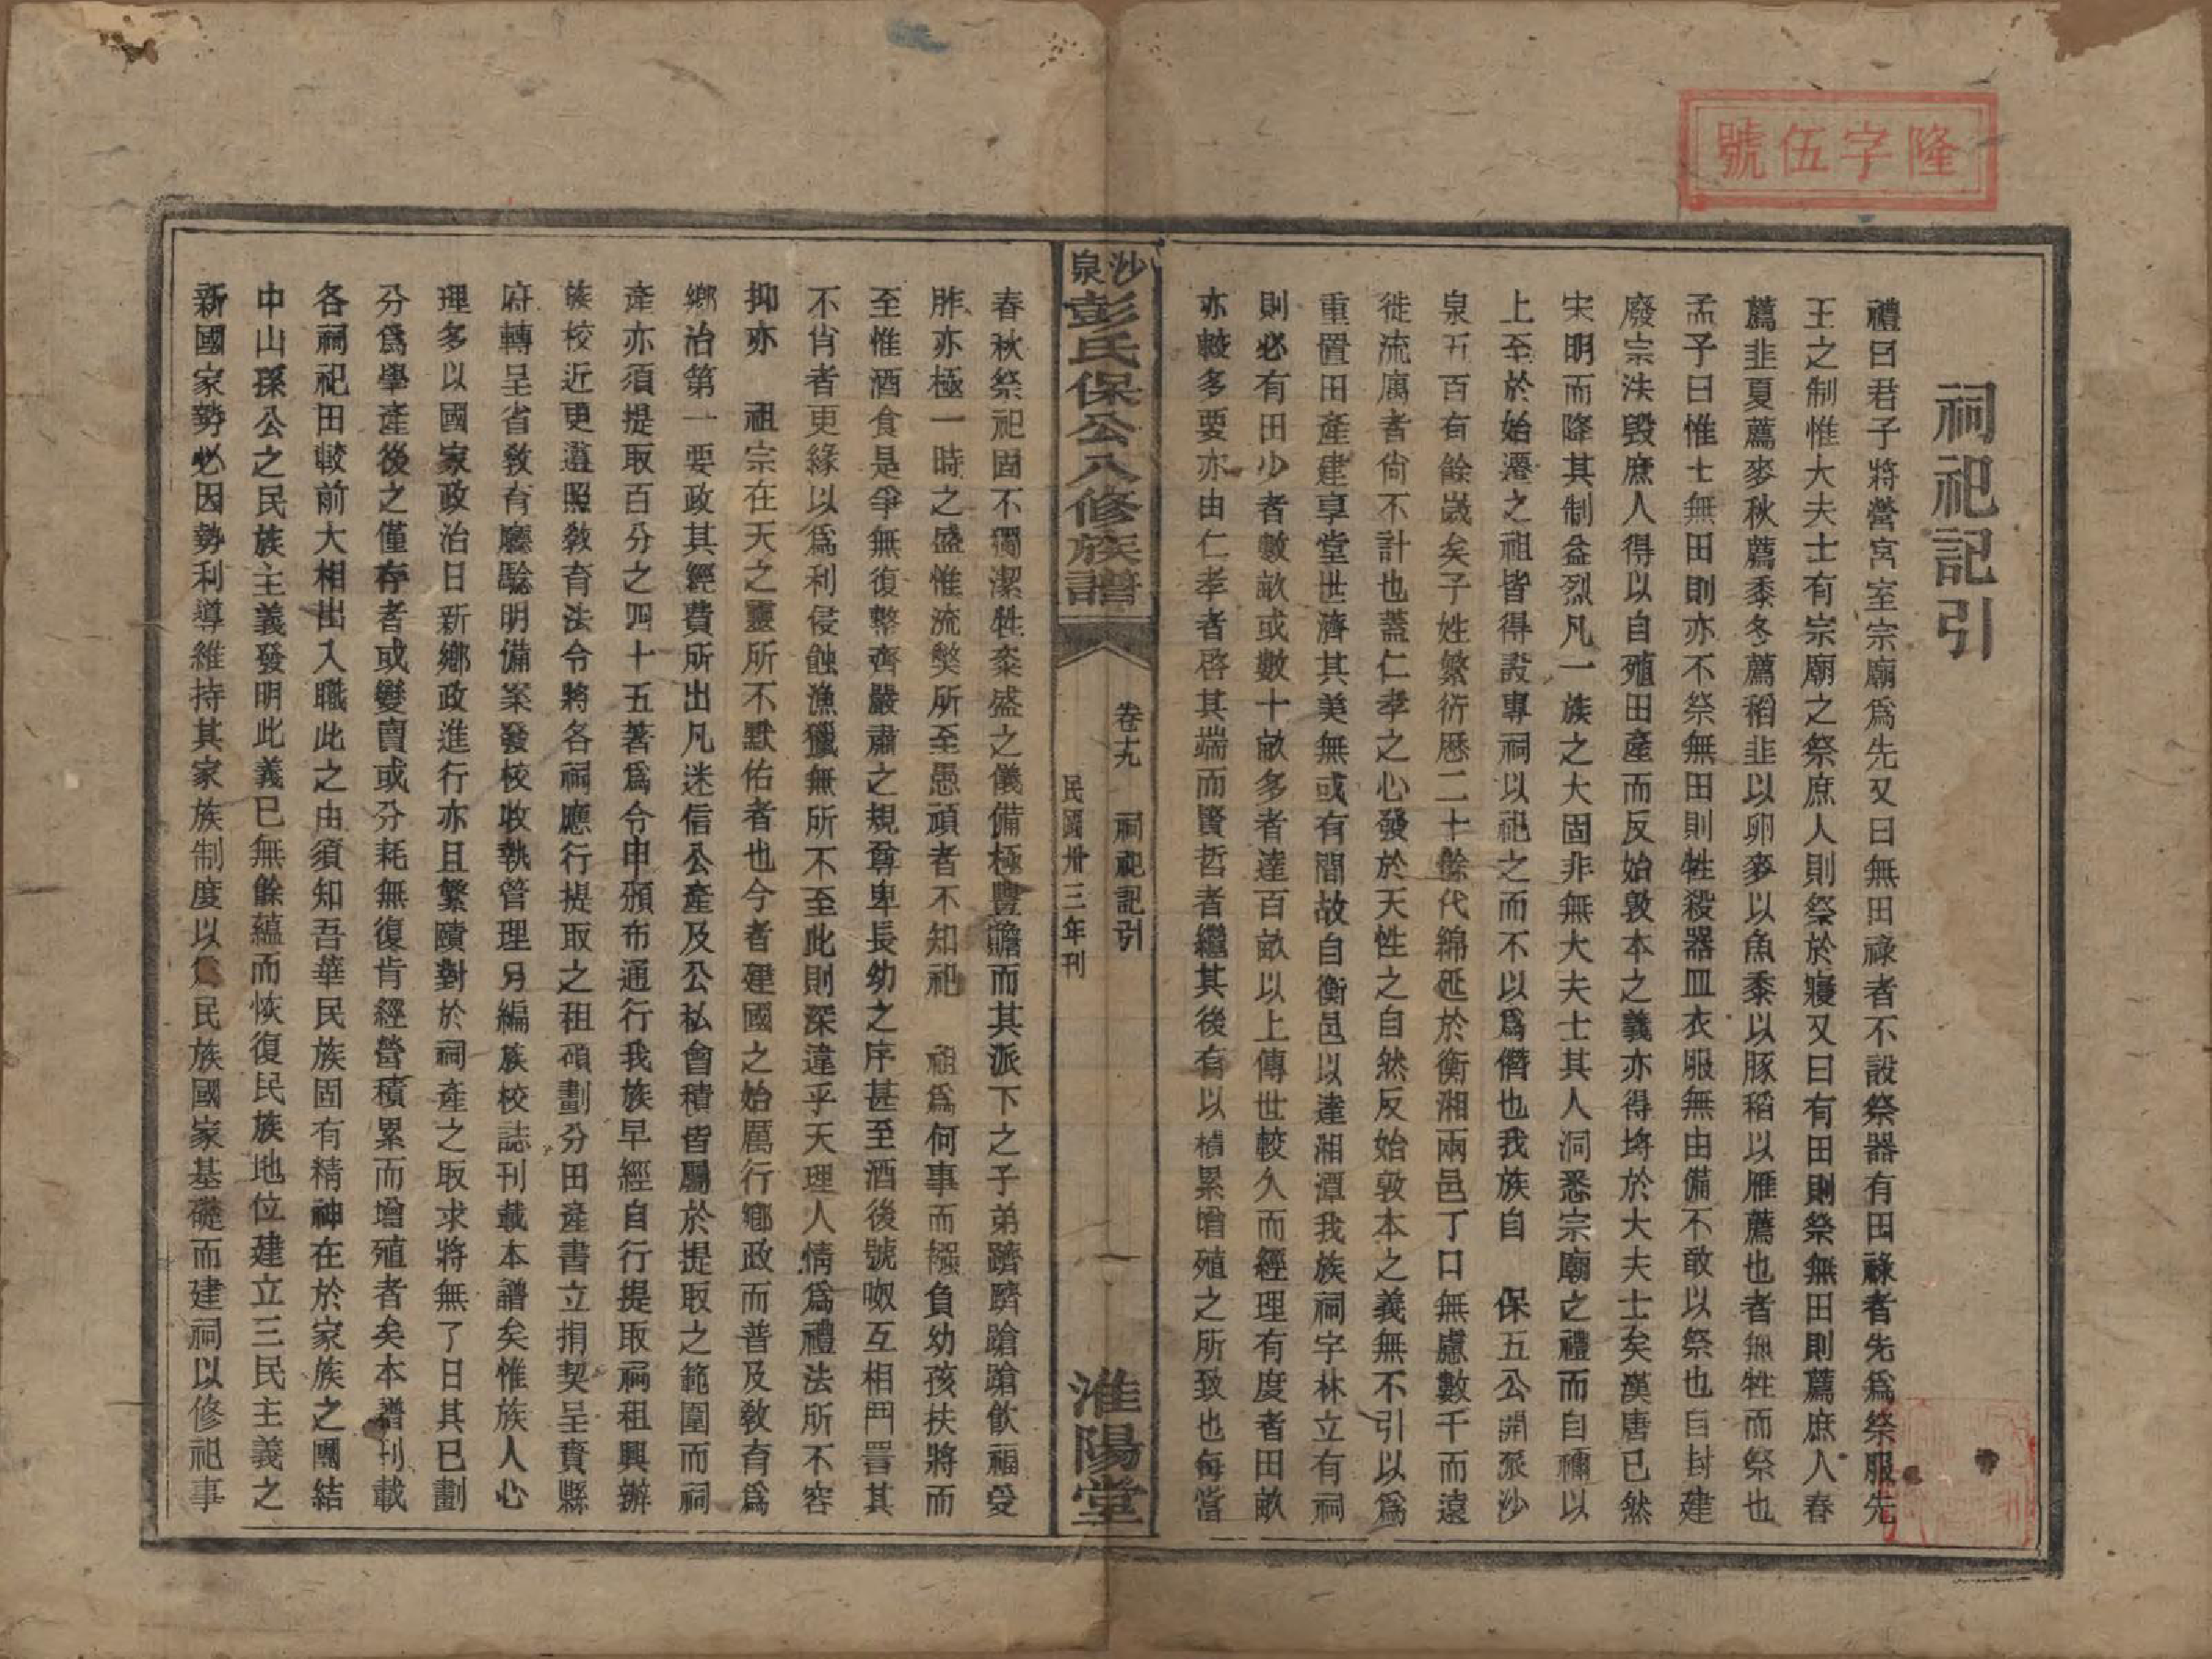 隆字伍號
祠祀記引
禮曰君子將營宮室宗廟爲先又曰無田祿者不設祭器有田祿者先爲祭服先
王之制惟大夫士有宗廟之祭庶人則祭於寢又曰有田則祭無田則薦庶人春
薦韭夏薦麥秋薦黍冬薦稻韭以卵麥以魚黍以豚稻以雁薦也者無牲而祭也
孟子曰惟士無田則亦不祭無田則牲殺器皿衣服無由備不敢以祭也自封建
廢宗法毀庶人得以自殖田產而反始敦本之義亦得埓於大夫士矣漢唐已然
宋明而降其制益烈凡一族之大固非無大夫士其人洞悉宗廟之禮而自禰以
上至於始遷之祖皆得設專祠以祀之而不以爲僭也我族自　保五公開派沙
泉五百有餘歲矣子姓繁衍歷二十餘代綿延於衡湘兩邑丁口無慮數千而遠
徙流寓者尙不計也蓋仁孝之心發於天性之自然反始敦本之義無不引以爲
重置田產建享堂世濟其美無或有間故自衡邑以達湘潭我族祠宇林立有祠
則必有田少者數畝或數十畝多者達百畝以上傳世較久而經理有度者田畝
亦較多要亦由仁孝者啓其端而賢哲者繼其後有以積累增殖之所致也每當
沙泉彭氏保公八修族譜
卷十九　祠祀記引
民國卅三年刊
一
淮陽堂
春秋祭祀固不獨潔牲粢盛之儀備極豐贍而其派下之子弟躋躋蹌蹌飮福受
胙亦極一時之盛惟流弊所至愚頑者不知祀　祖爲何事而襁負幼孩扶將而
至惟酒食是爭無復整齊嚴肅之規尊卑長幼之序甚至酒後號呶互相鬥詈其
不肖者更緣以爲利侵蝕漁獵無所不至此則深違乎天理人情爲禮法所不容
抑亦　祖宗在天之靈所不默佑者也今者建國之始厲行鄕政而普及敎育爲
鄕治第一要政其經費所出凡迷信公產及公私會積皆屬於提取之範圍而祠
產亦須提取百分之四十五著爲令甲頒布通行我族早經自行提取祠租興辦
族校近更遵照敎育法令將各祠應行提取之租碩劃分田產書立捐契呈賫縣
府轉呈省敎育廳驗明備案發校收執管理另編族校誌刊載本譜矣惟族人心
理多以國家政治日新鄕政進行亦且繁賾對於祠產之取求將無了日其已劃
分爲學產後之僅存者或變賣或分耗無復肯經營積累而增殖者矣本譜刊載
各祠祀田較前大相出入職此之由須知吾華民族固有精神在於家族之團結
中山孫公之民族主義發明此義已無餘蘊而恢復民族地位建立三民主義之
新國家勢必因勢利導維持其家族制度以爲民族國家基礎而建祠以修祀事